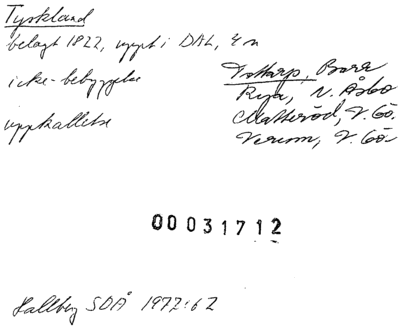 Tyskland
belagt 1822, uppt i DAL, 4 n
icke-bebyggelse Tottarp, Bara
Rya, N. Åsbo
uppkallelse Matteröd, V. Gö.
Verum, V. Gö.
00031712
Hallberg SDÅ 1972:62